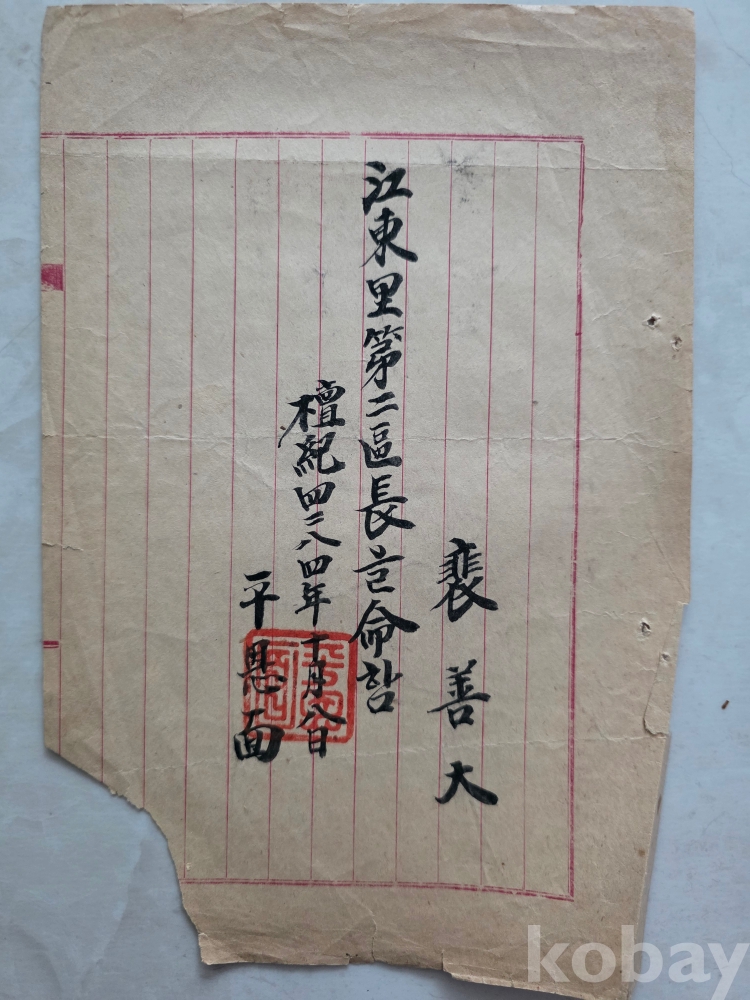 裴善大
江東里第二區長을命함
檀紀四二八四年十月八日
平恩面
kobay